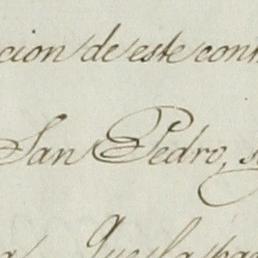 cion de este con
San Pedro, s
Que la pa